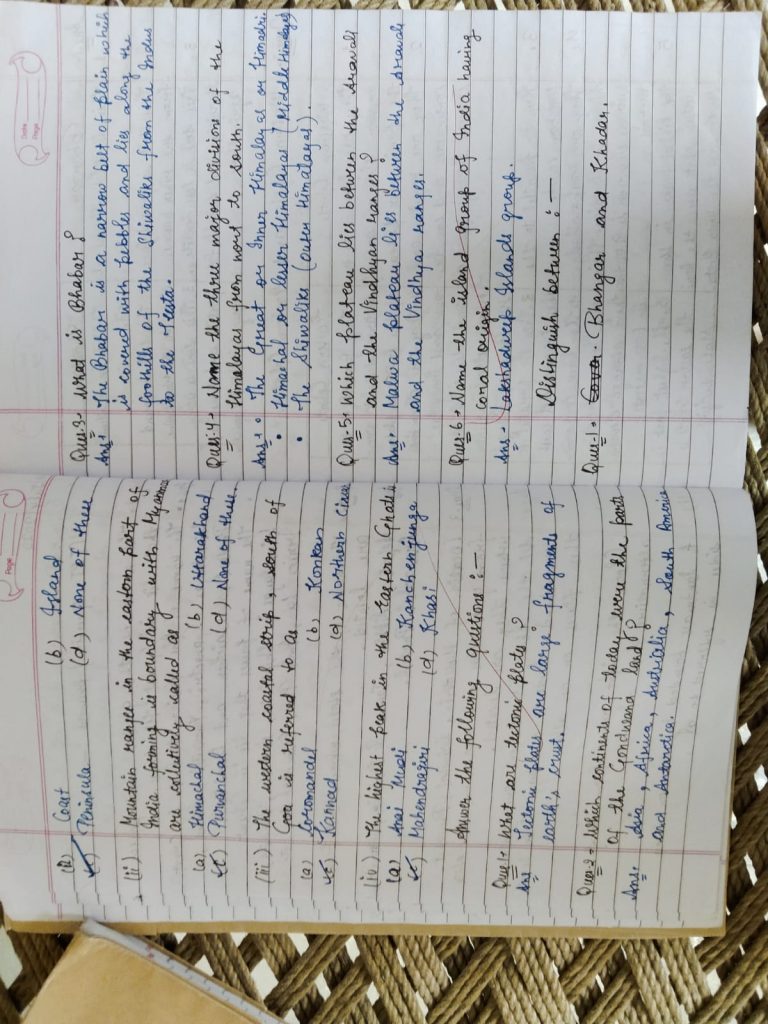 Page
(a) Coast (b) Island
(c) Peninsula (d) None of these
(ii) Mountain range in the eastern part of
India forming is boundary with Myanmar
are collectively called as
(a) Himachal (b) Uttarakhand
(c) Purvanchal (d) None of these.
(iii) The western coastal strip, south of
Goa is referred to as
(a) Coromandel (b) Konkan
(c) Kannad (d) Northern Circar
(iv) The highest peak in the Eastern Ghats is
(a) Anai Mudi (b) Kanchenjunga
(c) Mahendragiri (d) Khasi
Answer the following questions :—
Ques-1→ What are tectonic plates ?
Ans Tectonic plates are large fragments of
earth's crust.
Ques-2→ Which continents of today were the parts
of the Gondwana land?
Ans→ Asia, Africa, Australia, South America
and Antarctica.
Date
Page
Ques-3→ what is Bhabar ?
Ans→ The Bhabar is a narrow belt of plain which
is covered with pebbles and lies along the
foothills of the Shiwaliks from the Indus
to the Teesta.
Ques-4→ Name the three major divisions of the
Himalayas from nort to south.
Ans→ • The Great or Inner Himalayas or Himadri.
• Himachal or lesser Himalayas (Middle Himalayas)
• The Shiwaliks (outer Himalayas).
Ques-5→ Which plateau lies between the Aravali
and the Vindhyan ranges?
Ans→ Malwa plateau lies between the Aravali
and the Vindhya ranges.
Ques-6→ Name the island group of India having
coral origin.
Ans→ Lakshadweep Islands group.
Distinguish between :—
Ques-1→ Bhangar and Khadar.